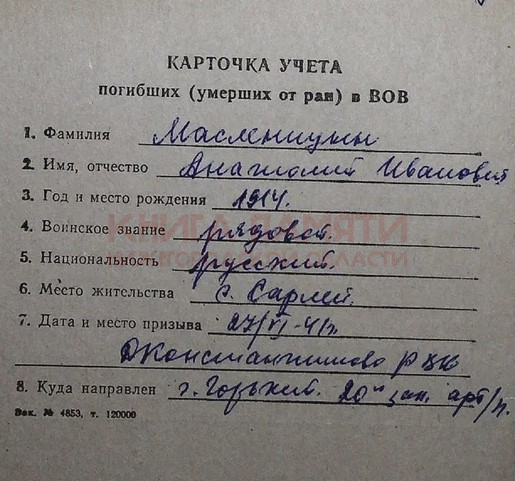 КАРТОЧКА УЧЕТА
погибших (умерших от ран) в ВОВ
1. Фамилия Масленицын
2. Имя, отчество Анатолий Иванович
3. Год и место рождения 1914.
КНИГА ПАМЯТИ
4. Воинское звание рядовой.
5. Национальность русский.
6. Место жительства с. Сарлей.
7. Дата и место призыва 27/VI-41г.
ДКонстантиново РВК
8. Куда направлен г. Горький. 20й зап. арт/п.
Зак. № 4853, т. 120000